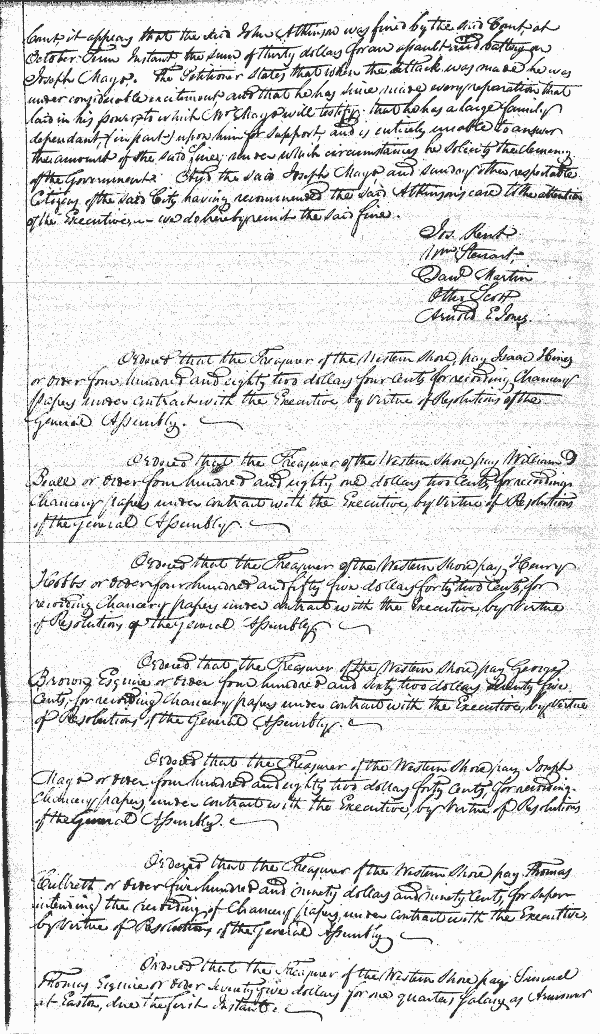 Court it appears that the said John Atkinson was fined by the said Court at
October Term Instant the sum of thirty dollars for an assault and battery on
Joseph Mayo. The Petitioner States that when the attack was made he was
under considerable excitement and that he has since made every reparation that
laid in his power to which Mr Mayo will testify, that he has a large family
dependant (in part) upon him for support, and is entirely unable to answer
the amount of the said fine, under which circumstances he solicits the clemency
of the Government. And the said Joseph Mayo and sundry other respectable
Citizens of the said City having recommended the said Atkinson's case to the attention
of the Executive, we do hereby remit the said fine.
Jos. Kent
Wm Stewart
Danl Martin
Otho Scott
Arnold E Jones
Ordered that the Treasurer of the Western Shore, pay Isaac Hines
or order four hundred and eighty two dollars four Cents for recording Chancery
papers under contract with the Executive by Virtue of Resolutions of the
General Assembly.
Ordered that the Treasurer of the Western Shore pay William
Beall or order four hundred and eighty one dollars two Cents, for recording
Chancery papers under contract with the Executive, by Virtue of Resolutions
of the General Assembly.
Ordered that the Treasurer of the Western Shore pay Henry
Hobbs or order four hundred and fifty five dollars forty two Cents, for
recording Chancery papers under contract with the Executive by Virtue
of Resolutions of the General Assembly
Ordered that the Treasurer of the Western Shore pay George
Brown Esquire or order four hundred and sixty two dollars twenty five
Cents, for recording Chancery papers under contract with the Executive, by Virtue
of Resolutions of the General Assembly.
Ordered that the Treasurer of the Western Shore pay Joseph
Mayo or order four hundred and eighty two dollars forty Cents, for recording
Chancery papers, under contract with the Executive, by Virtue of Resolutions
of the General Assembly.
Ordered that the Treasurer of the Western Shore pay Thomas
Culbreth or order five hundred and ninety dollars and ninety Cents, for super
intending the recording of Chancery papers, under contract with the Executive,
by Virtue of Resolutions of the General Assembly
Ordered that the Treasurer of the Western Shore pay Samuel
Thomas Esquire or order seventy five dollars for one quarters Salary as Armourer
at Easton, due the first Instant.